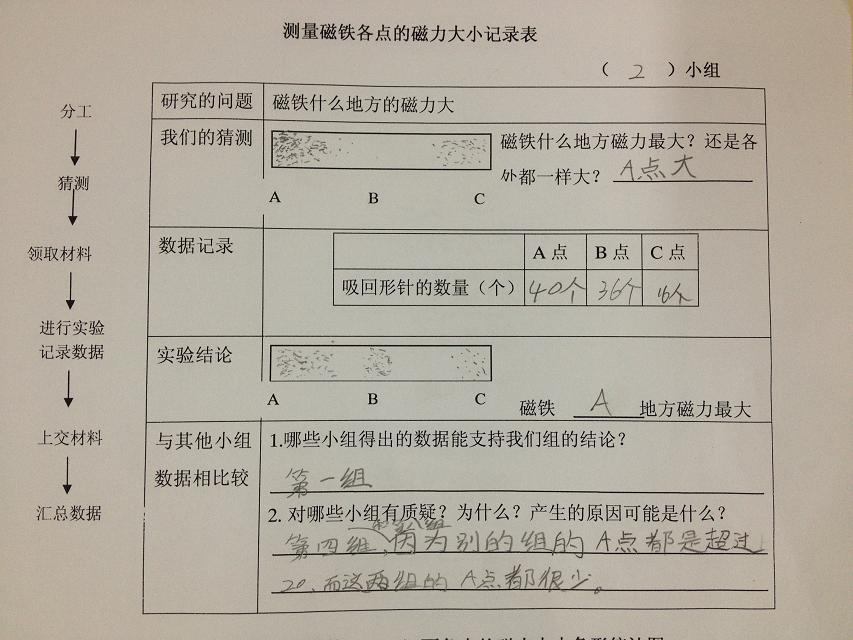 测量磁铁各点的磁力大小记录表
（ 2 ）小组
分工
猜测
领取材料
进行实验
记录数据
上交材料
汇总数据
研究的问题 磁铁什么地方的磁力大
我们的猜测 磁铁什么地方磁力最大？还是各
处都一样大？ A点大
A B C
数据记录
A 点 B 点 C 点
吸回形针的数量（个） 40个 36个 16个
实验结论
A B C
磁铁 A 地方磁力最大
与其他小组
数据相比较
1.哪些小组得出的数据能支持我们组的结论？
第一组
2. 对哪些小组有质疑？为什么？产生的原因可能是什么？
和第八组
第四组，因为别的组的A点都是超过
20、而这两组的A点都很少。